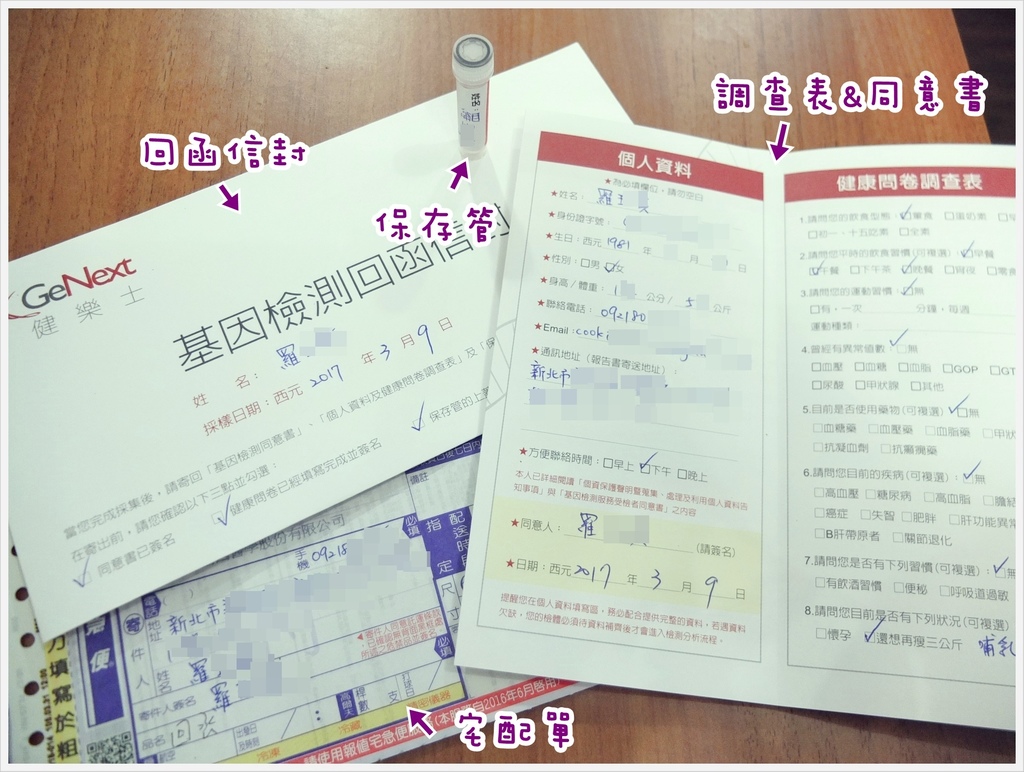 回函信封
保存管
調查表&同意書
宅配單
姓名
GeNext
健樂士
基因檢測回函信封
姓 名: 羅
採樣日期:西元 2017 年 3 月 9 日
當您完成採集後,請寄回「基因檢測同意書」、「個人資料及健康問卷調查表」及「保
在寄出前,請您確認以下三點並勾選:
同意書已簽名
健康問卷已經填寫完成並簽名
保存管的上
個人資料
★為必填欄位,請勿空白
★姓名: 羅
★身份證字號:
★生日:西元 1981 年 月 日
★性別:□男 □女
★身高/體重: 1 公分/ 5 公斤
★聯絡電話: 092180
★Email: cooki
★通訊地址(報告書寄送地址):
新北市
★方便聯絡時間:□早上 □下午 □晚上
本人已詳細閱讀「個資保護聲明暨蒐集、處理及利用個人資料告
知事項」與「基因檢測服務受檢者同意書」之內容
★同意人: 羅 (請簽名)
★日期:西元 2017 年 3 月 9 日
提醒您在個人資料填寫區,務必配合提供完整的資料,若遇資料
欠缺,您的檢體必須待資料補齊後才會進入檢測分析流程。
健康問卷調查表
1.請問您的飲食型態:□葷食 □蛋奶素
□初一、十五吃素 □全素
2.請問您平時的飲食習慣(可複選)□早餐
□午餐 □下午茶 □晚餐 □宵夜 □零食
3.請問您的運動習慣:□無
□有,一次 分鐘,每週
運動種類:
4.曾經有異常值數:□無
□血壓 □血糖 □血脂 □GOP □GT
□尿酸 □甲狀腺 □其他
5.目前是否使用藥物(可複選)□無
□血糖藥 □血壓藥 □血脂藥 □甲狀
□抗凝血劑 □抗癲癇藥
6.請問您目前的疾病(可複選):□無
□高血壓 □糖尿病 □高血脂 □膽結
□癌症 □失智 □肥胖 □肝功能異常
□B肝帶原者 □關節退化
7.請問您是否有下列習慣(可複選):□無
□有飲酒習慣 □便秘 □呼吸道過敏
8.請問您目前是否有下列狀況(可複選)
□懷孕 □還想再瘦三公斤 哺乳
股份有限公司
手機 09218
電話
地址 新北市
寄件人
姓名 羅
寄件人簽名 羅
品名 回水
必填
指定
配送時
備註
尺寸
宅急便
請使用報值宅急便服
(本服務自2016年6月啓用)
方填寫於粗